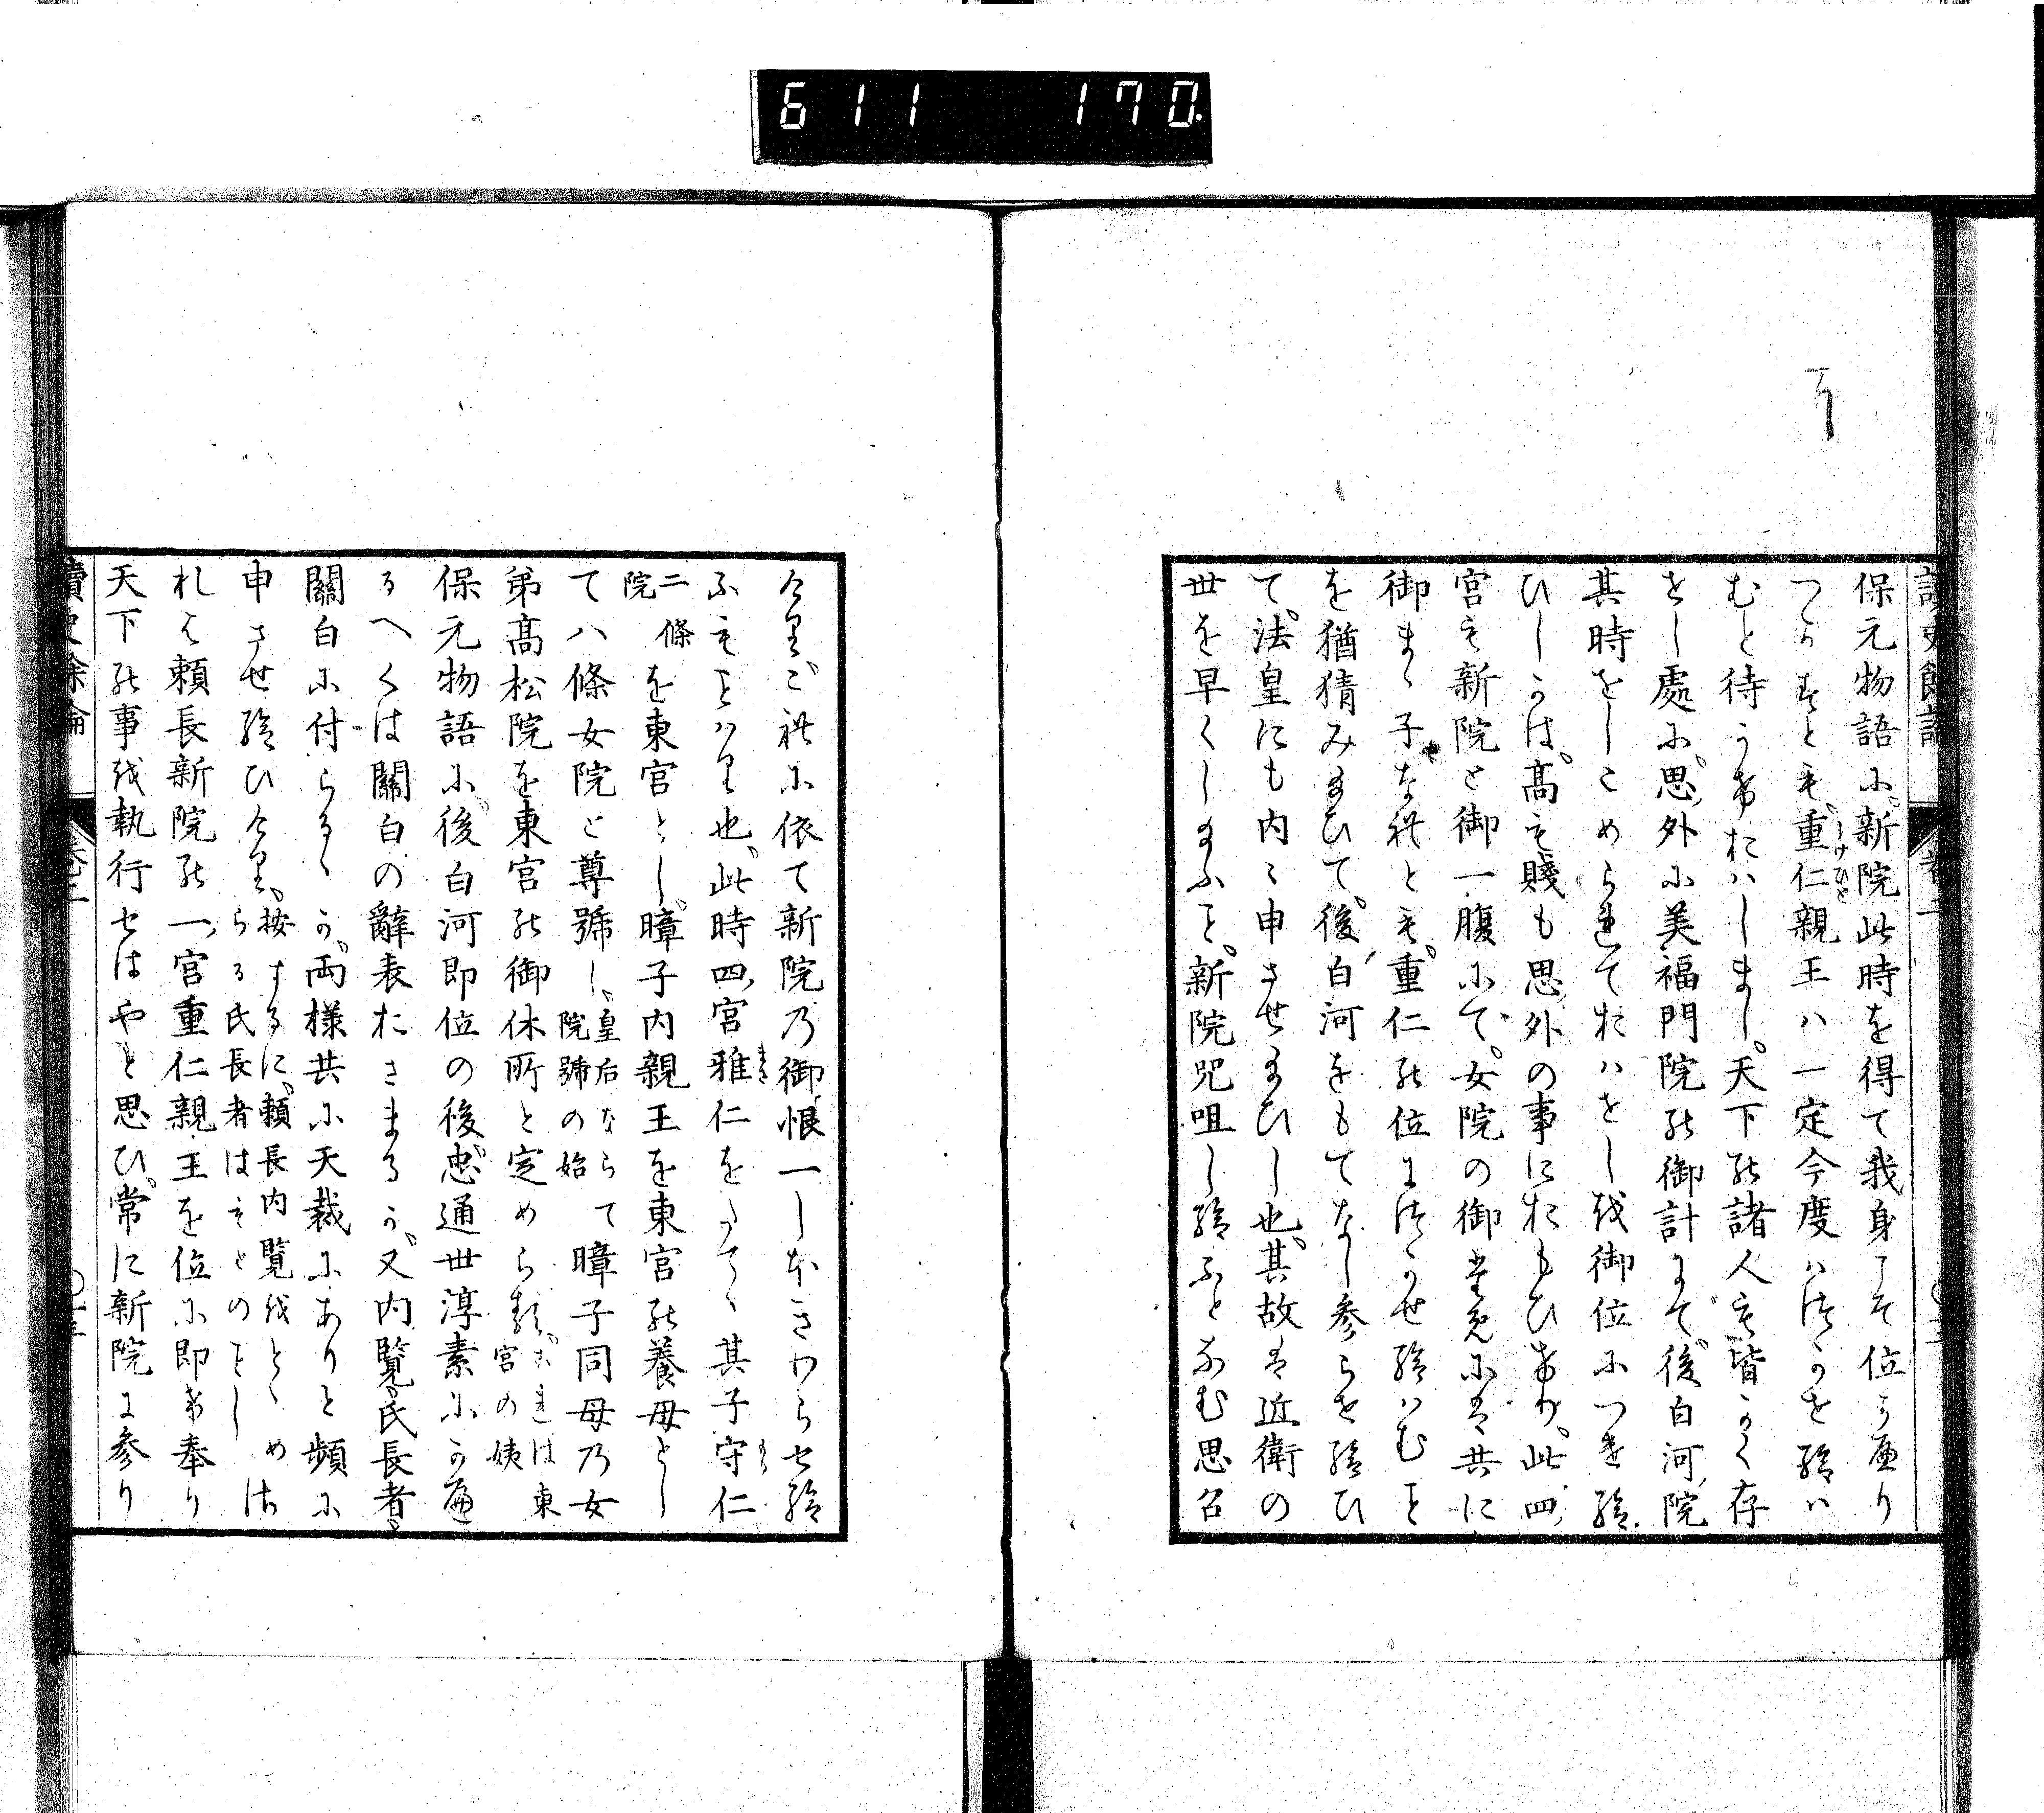 611 170.
保元物語に新院此時を得て我身こそ位にかへり
つかすとも重仁親王ハ一定今度ハ位につかせ給ハ
むと待うけおハしまし天下の諸人も皆かく存
せし處に思外に美福門院の御計にて後白河院
其時をしこめられておハせしを御位につき給
ひしかは高も賤も思外の事におもひけり此四
宮も新院と御一腹にて女院の御ためにハ共に
御まゝ子なれとも重仁の位につかせ給ハむを
を猶猜みまひて後白河をもてなし参らせ給ひ
て法皇にも内々申させまひし也其故ハ近衛の
世を早くしまふを新院咒咀し給ふとなむ思召
けりこれに依て新院乃御恨一しほまさらせ給
ふもことハり也此時四宮雅仁をたてゝ其子守仁
二條院を東宮とし暲子内親王を東宮の養母とし
て八條女院と尊號し皇后ならて院號の始暲子同母乃女
弟髙松院を東宮の御休所と定めらるこれは東宮の姨
保元物語に後白河即位の後忠通世淳素にかへ
るへくは關白の辭表おさまるか又内覽氏長者
關白に付らるゝか両様共に天裁にありと頻に
申させ給ひけり按するに頼長内覽をとゝめらる氏長者はもとのことし
れは頼長新院の一宮重仁親王を位に即け奉り
天下の事を執行せはやと思ひ常に新院に参り
讀史餘論 巻二